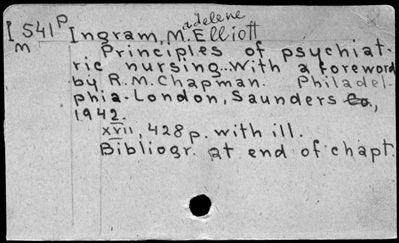 I 541 p Ingram, M.adelene Elliott
m
Principles of psychiat-
ric nursing. With a foreword
by R.M. Chapman. Philadel-
phia-London, Saunders Co.,
1942.
xvii, 428 p. with ill.
Bibliogr. at end of chapt.